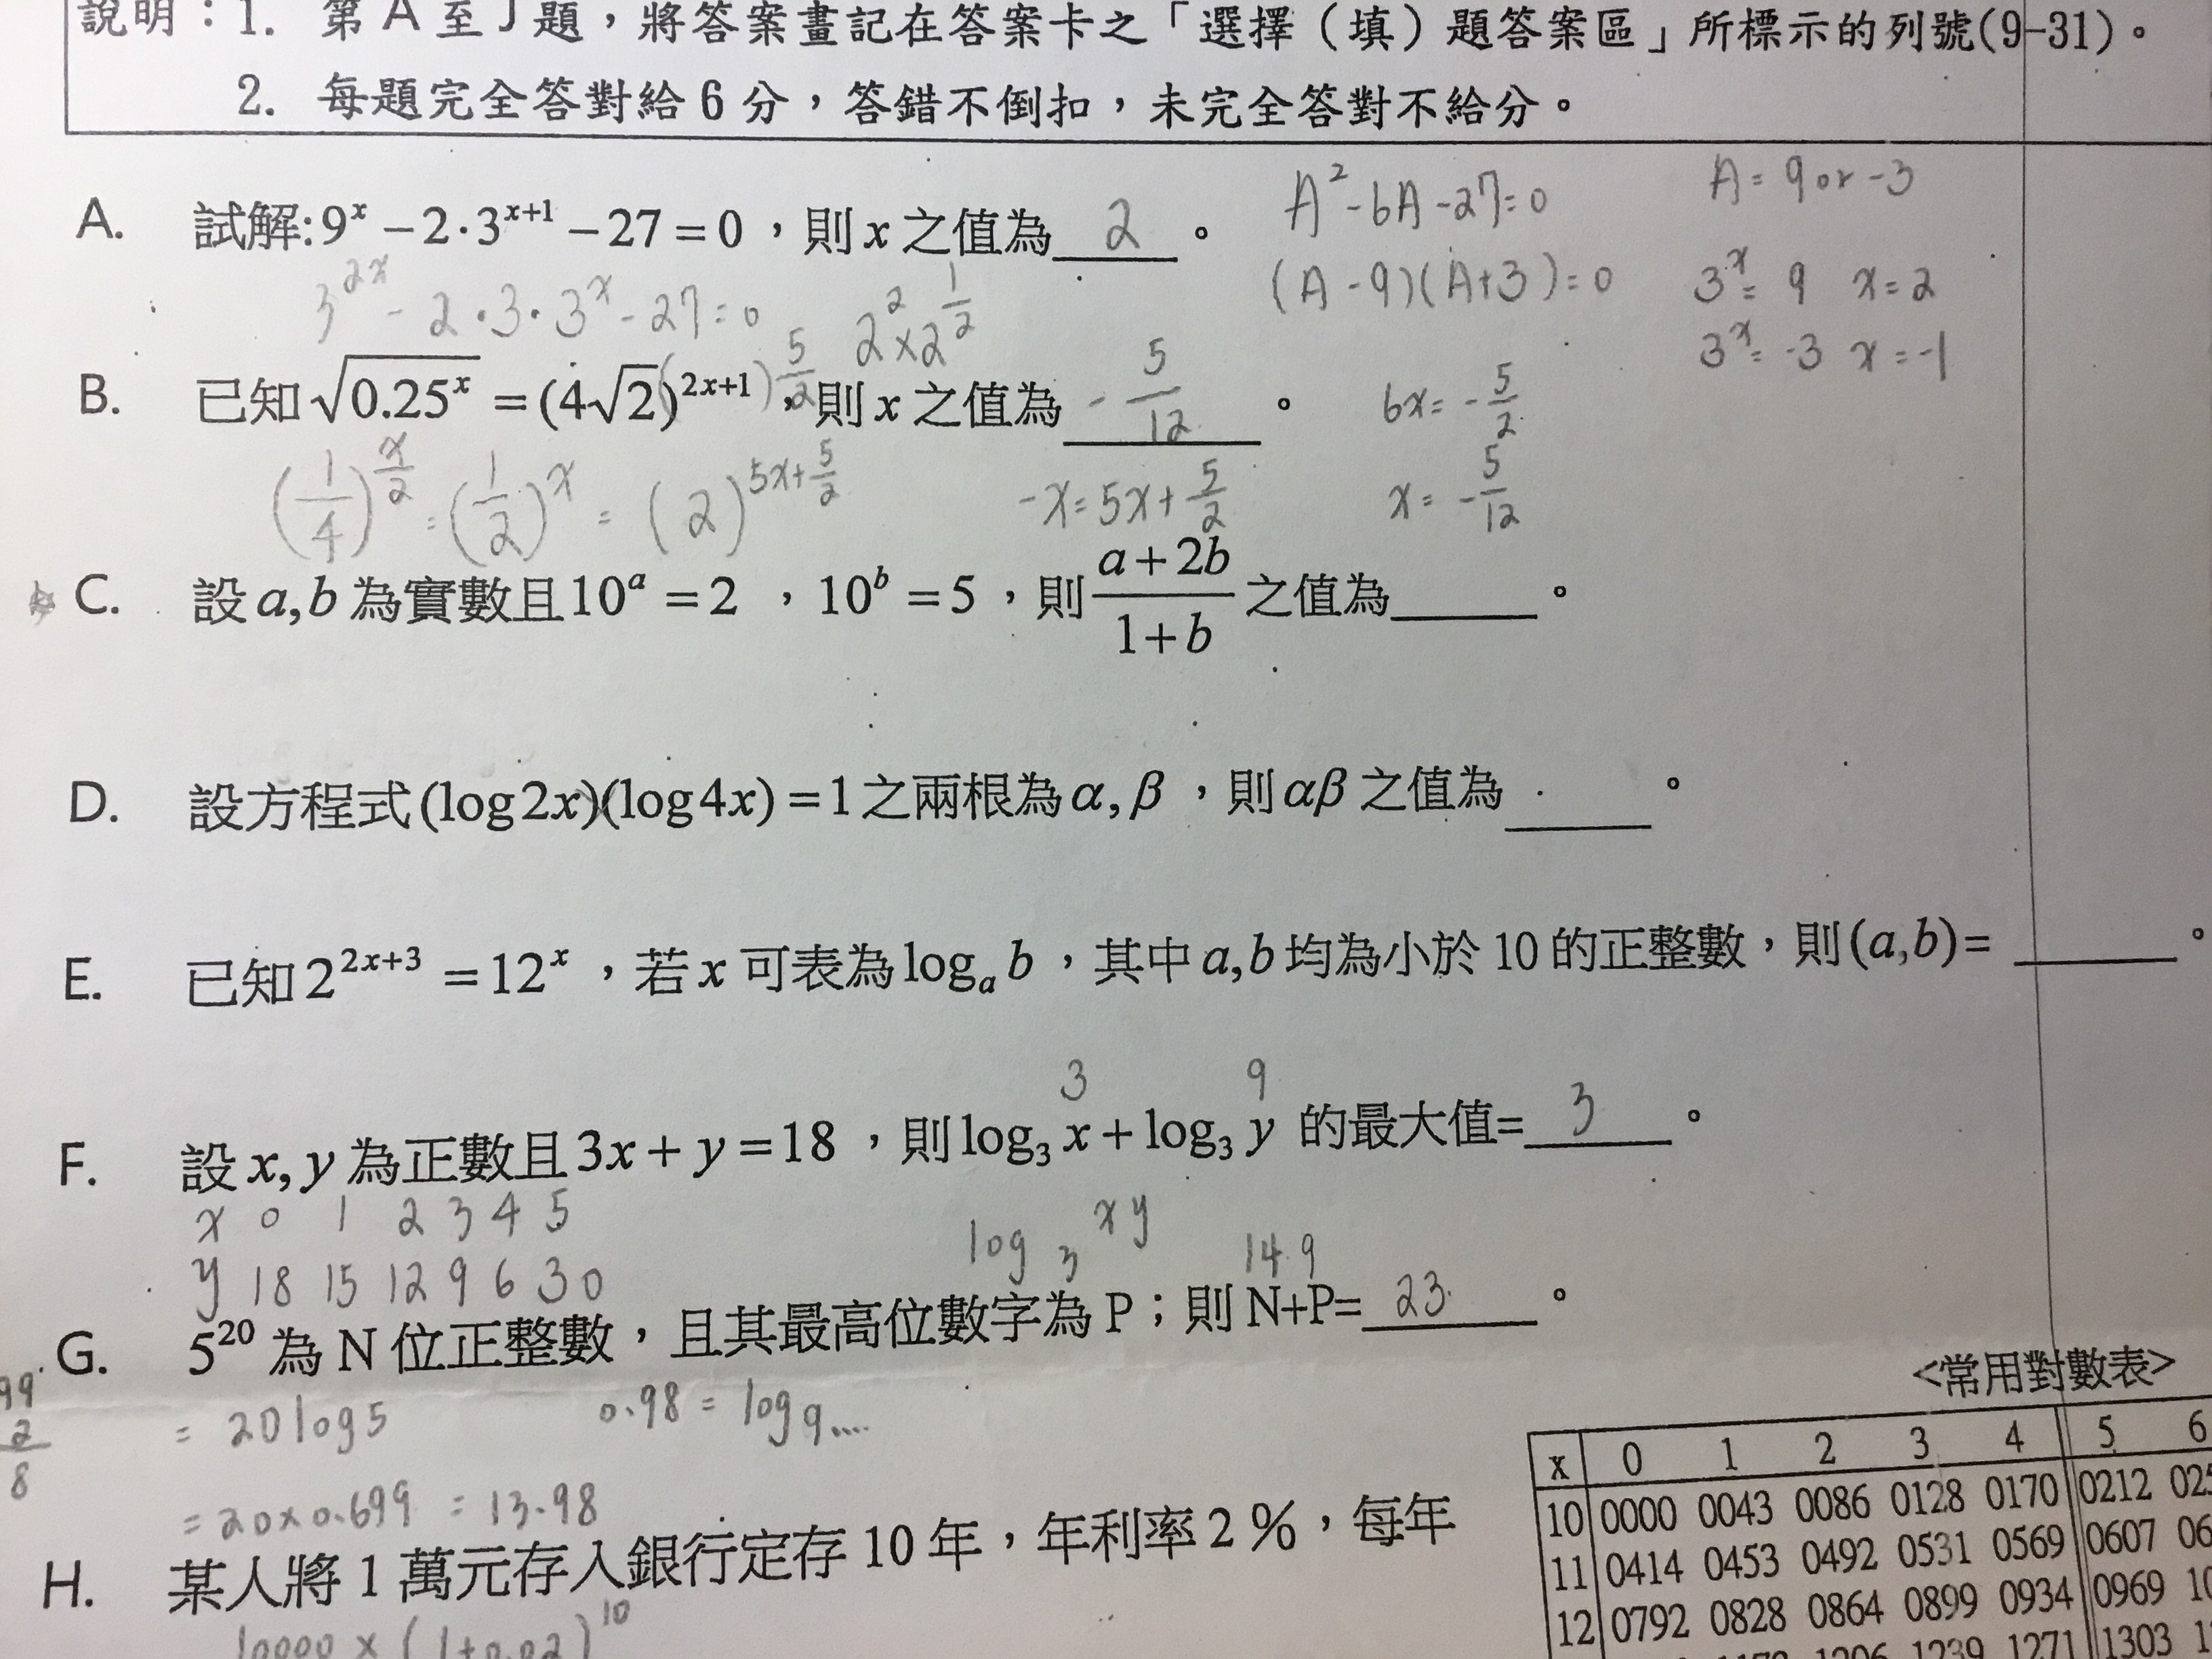 說明：1. 第 A 至 J 題，將答案畫記在答案卡之「選擇（填）題答案區」所標示的列號(9-31)。
2. 每題完全答對給 6 分，答錯不倒扣，未完全答對不給分。
A. 試解:9^x − 2·3^{x+1} − 27 = 0，則 x 之值為 2 。
A²-6A-27=0
A = 9 or -3
3^{2x} - 2·3·3^x - 27 = 0
2²×2^{1/2}
(A-9)(A+3)=0
3^x = 9 x=2
3^x = -3 x=-1
B. 已知 √(0.25^x) = (4√2)^{2x+1}，則 x 之值為 -5/12 。
( ) 5/2
6x = -5/2
(1/4)^{x/2} = (1/2)^x = (2)^{5x+5/2}
-x = 5x+5/2
x = -5/12
C. 設 a,b 為實數且 10^a = 2 ，10^b = 5，則 (a+2b)/(1+b) 之值為 。
D. 設方程式 (log 2x)(log 4x) = 1 之兩根為 α, β ，則 αβ 之值為 。
E. 已知 2^{2x+3} = 12^x ，若 x 可表為 log_a b ，其中 a,b 均為小於 10 的正整數，則 (a,b)= 。
3 9
F. 設 x, y 為正數且 3x + y = 18 ，則 log₃ x + log₃ y 的最大值= 3 。
x 0 1 2 3 4 5
y 18 15 12 9 6 3 0
log₃ xy
14 9
G. 5^{20} 為 N 位正整數，且其最高位數字為 P；則 N+P= 23 。
99
2
8
= 20 log 5
0.98 = log 9....
= 20×0.699 = 13.98
<常用對數表>
x 0 1 2 3 4 5 6
10 0000 0043 0086 0128 0170 0212
11 0414 0453 0492 0531 0569 0607
12 0792 0828 0864 0899 0934 0969
1239 1271 1303
H. 某人將 1 萬元存入銀行定存 10 年，年利率 2％，每年
10000 × (1+0.02)^{10}